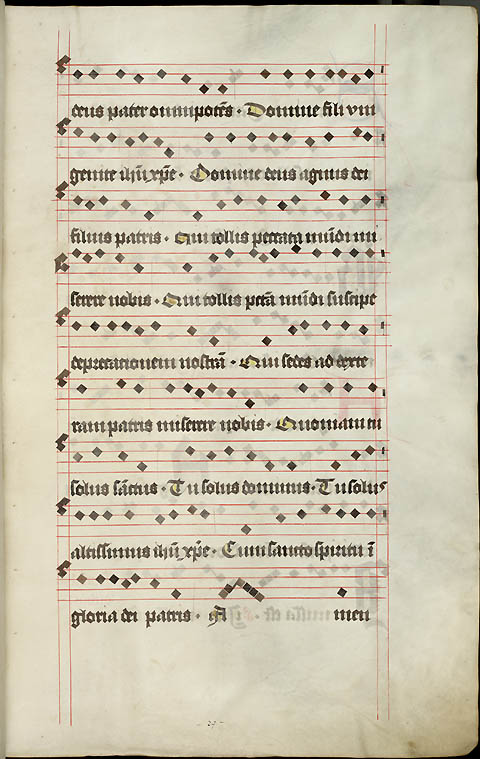 deus pater omnipotēs · Domine fili vni
genite ihū xpē · Domine deus agnus dei
filius patris · Qui tollis peccata mūdi mi
serere nobis · Qui tollis pctā mūdi suscipe
deprecationem nostrā · Qui sedes ad dexte
ram patris miserere nobis · Quoniam tu
solus sanctus · Tu solus dominus · Tu solus
altissimus ihū xpē · Cum sancto spiritu ī
gloria dei patris · A men